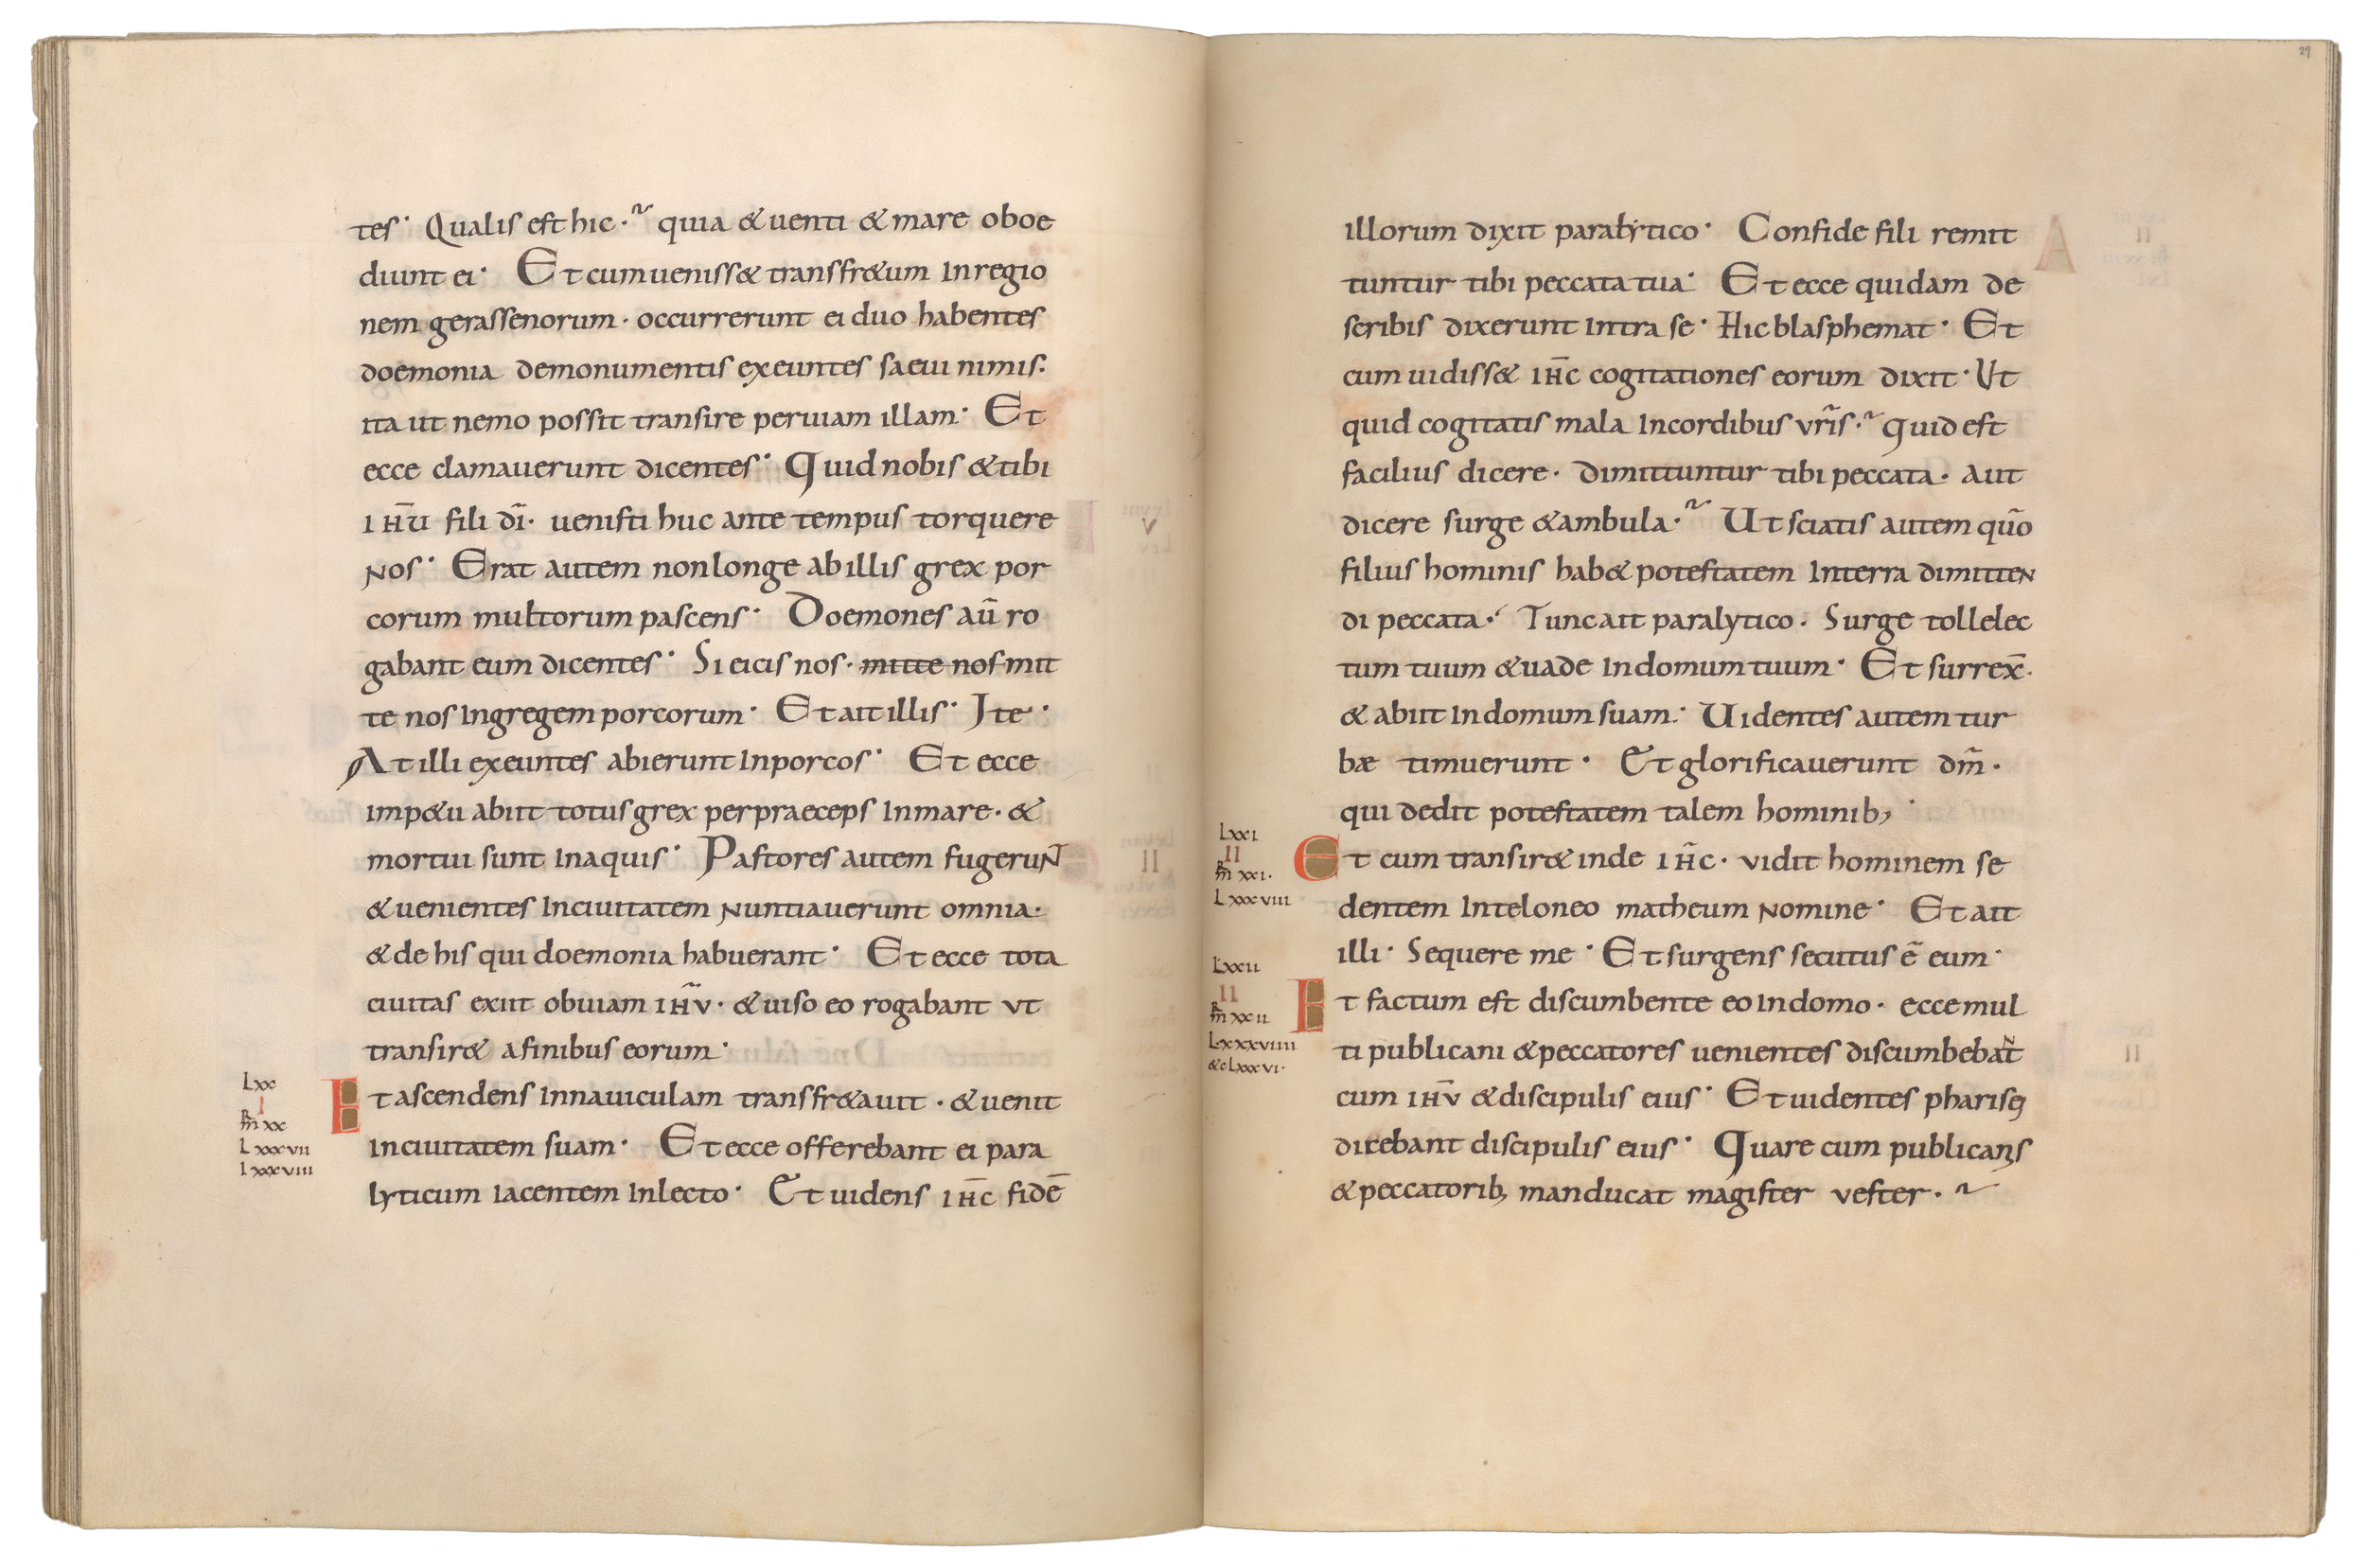 tes· Qualis est hic·~ quia & uenti & mare oboe
diunt ei· Et cum ueniss& transfr&um In regio
nem gerassenorum· occurrerunt ei duo habentes
doemonia demonumentis exeuntes saeui nimis·
ita ut nemo possit transire per uiam illam· Et
ecce clamauerunt dicentes· Quid nobis & tibi
IHŪ fili dī· uenisti huc ante tempus torquere
Nos· Erat autem non longe ab illis grex por
corum multorum pascens· Doemones aū ro
gabant eum dicentes· Si eicis nos· mitte nos mit
te nos In gregem porcorum· Et ait illis· Ite·
At illi exeuntes abierunt In porcos· Et ecce
imp&u abiit totus grex per praeceps In mare· &
mortui sunt In aquis· Pastores autem fugeruNT
& uenientes In ciuitatem Nuntiauerunt omnia·
& de his qui doemonia habuerant· Et ecce tota
ciuitas exiit obuiam IHV̄· & uiso eo rogabant vt
transir& a finibus eorum·
Lxx
I
m̄R xx
Lxxxvii
lxxxviii
Et ascendens In nauiculam transfr&auit· & uenit
In ciuitatem suam· Et ecce offerebant ei para
lyticum iacentem In lecto· Et uidens IHC̄ fidē
27
illorum dixit paralytico· Confide fili remit
tuntur tibi peccata tua· Et ecce quidam de
scribis dixerunt Intra se· Hic blasphemat· Et
cum uidiss& IHC̄ cogitationes eorum dixit· Ut
quid cogitatis mala In cordibus vr̄is·~ quid est
facilius dicere· Dimittuntur tibi peccata· aut
dicere surge & ambula·~ Ut sciatis autem qūo
filius hominis hab& potestatem In terra dimitteN
di peccata· Tunc ait paralytico· Surge tolle lec
tum tuum & uade In domum tuum· Et surrex̄·
& abiit In domum suam· Uidentes autem tur
bæ timuerunt· Et glorificauerunt dm̄·
qui dedit potestatem talem hominib;·
Lxxi
II
m̄R xxi·
Lxxxviii
Et cum transir& inde IHC̄· vidit hominem se
dentem In teloneo matheum Nomine· Et ait
illi· Sequere me· Et surgens secutus ē eum·
Lxxii
II
m̄R xxii
Lxxxviiii
&cLxxxvi·
Et factum est discumbente eo In domo· ecce mul
ti publicani & peccatores uenientes discumbebaNt
cum IHV̄ & discipulis eius· Et uidentes pharisęi
dicebant discipulis eius· Quare cum publicanis
& peccatorib; manducat magister vester·~